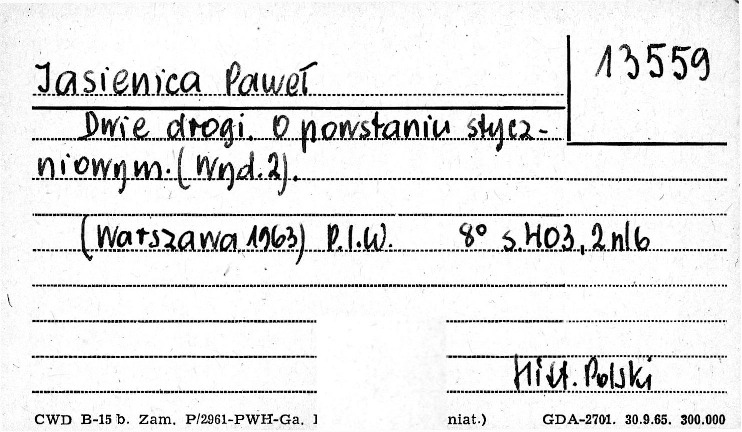 13559
Jasienica Paweł
Dwie drogi. O powstaniu stycz-
niowym. (Wyd. 2).
(Warszawa 1963) P.I.W. 8° s. 403, 2 nlb
Hist. Polski
CWD B-15 b. Zam. P/2961-PWH-Ga. niat.) GDA-2701. 30.9.65. 300.000